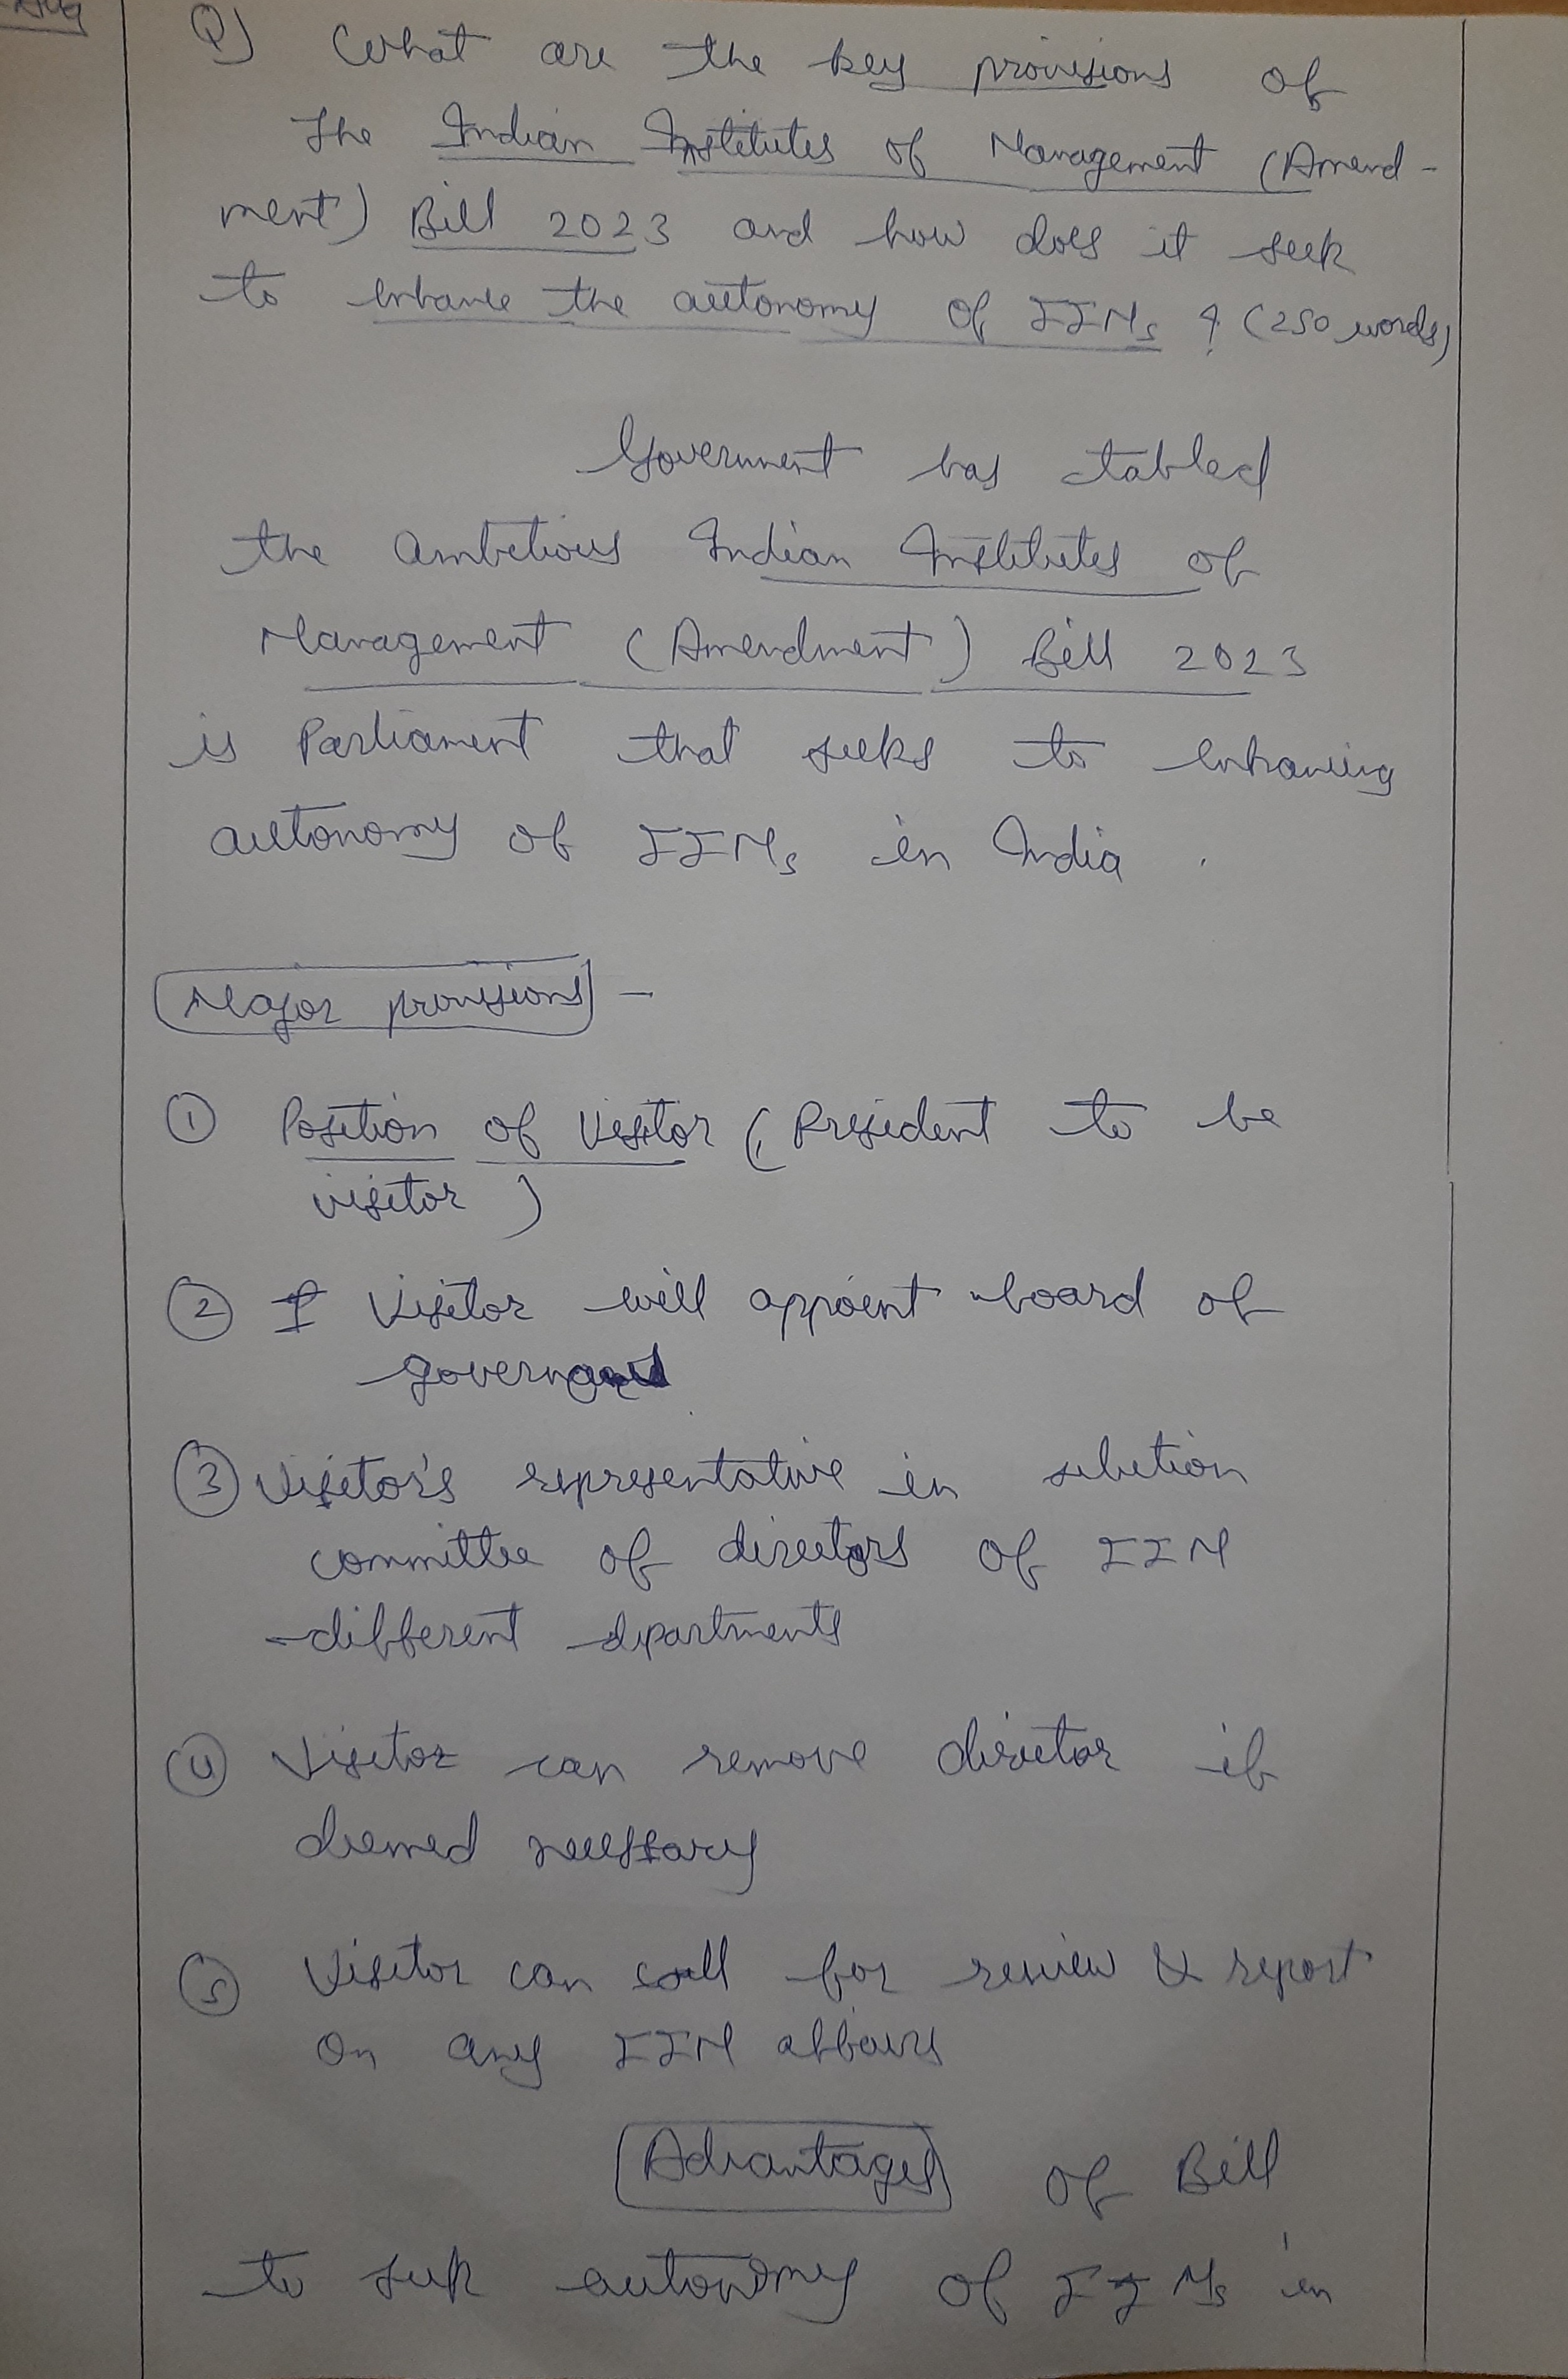 Aug
Q) What are the key provisions of
The Indian Institutes of Management (Amend-
ment) Bill 2023 and how does it seek
to enhance the autonomy of IIMs ? (250 words)
Government has tabled
the ambitious Indian Institutes of
Management (Amendment) Bill 2023
is Parliament that seeks to enhancing
autonomy of IIMs in India .
Major provisions -
① Position of Visitor ( President to be
visitor )
② Visitor will appoint board of
③ Visitor's representative in selection
committee of directors of IIM
different departments
④ Visitor can remove director if
deemed necessary
⑤ Visitor can call for review & report
on any IIM affairs
Advantages of Bill
to seek autonomy of IIMs in